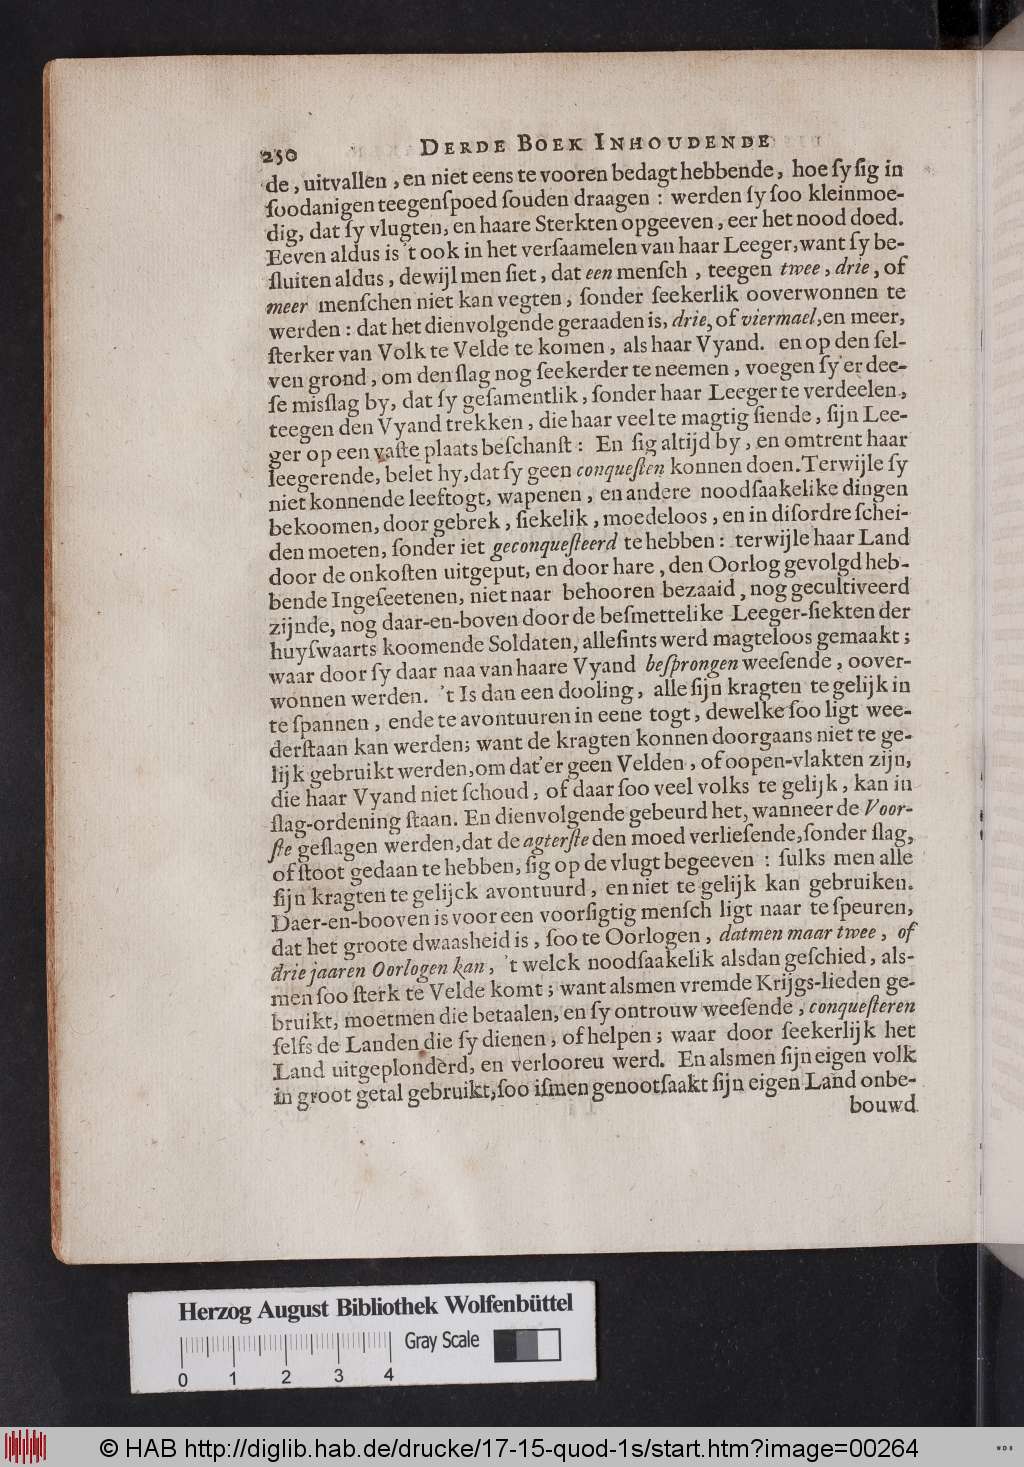 250 DERDE BOEK INHOUDENDE
de, uitvallen, en niet eens te vooren bedagt hebbende, hoe ſy ſig in
ſoodanigen teegenſpoed ſouden draagen: werden ſy ſoo kleinmoe-
dig, dat ſy vlugten, en haare Sterkten opgeeven, eer het nood doed.
Eeven aldus is 't ook in het verſaamelen van haar Leeger, want ſy be-
ſluiten aldus, dewijl men ſiet, dat een menſch, teegen twee, drie, of
meer menſchen niet kan vegten, ſonder ſeekerlik ooverwonnen te
werden: dat het dienvolgende geraaden is, drie, of viermael, en meer,
ſterker van Volk te Velde te komen, als haar Vyand. en op den ſel-
ven grond, om den ſlag nog ſeekerder te neemen, voegen ſy'er dee-
ſe misſlag by, dat ſy geſamentlik, ſonder haar Leeger te verdeelen,
teegen den Vyand trekken, die haar veel te magtig ſiende, ſijn Lee-
ger op een vaſte plaats beſchanſt: En ſig altijd by, en omtrent haar
leegerende, belet hy, dat ſy geen conqueſten konnen doen. Terwijle ſy
niet konnende leeftogt, wapenen, en andere noodſaakelike dingen
bekoomen, door gebrek, ſiekelik, moedeloos, en in diſordre ſchei-
den moeten, ſonder iet geconqueſteerd te hebben: terwijle haar Land
door de onkoſten uitgeput, en door hare, den Oorlog gevolgd heb-
bende Ingeſeetenen, niet naar behooren bezaaid, nog gecultiveerd
zijnde, nog daar-en-boven door de beſmettelike Leeger-ſiekten der
huyſwaarts koomende Soldaten, alleſints werd magteloos gemaakt;
waar door ſy daar naa van haare Vyand beſprongen weeſende, oover-
wonnen werden. 't Is dan een dooling, alle ſijn kragten te gelijk in
te ſpannen, ende te avontuuren in eene togt, dewelke ſoo ligt wee-
derſtaan kan werden; want de kragten konnen doorgaans niet te ge-
lijk gebruikt werden, om dat'er geen Velden, of oopen-vlakten zijn,
die haar Vyand niet ſchoud, of daar ſoo veel volks te gelijk, kan in
ſlag-ordening ſtaan. En dienvolgende gebeurd het, wanneer de Voor-
ſte geſlagen werden, dat de agterſte den moed verlieſende, ſonder ſlag,
of ſtoot gedaan te hebben, ſig op de vlugt begeeven: ſulks men alle
ſijn kragten te gelijck avontuurd, en niet te gelijk kan gebruiken.
Daer-en-booven is voor een voorſigtig menſch ligt naar te ſpeuren,
dat het groote dwaasheid is, ſoo te Oorlogen, datmen maar twee, of
drie jaaren Oorlogen kan, 't welck noodſaakelik alsdan geſchied, als-
men ſoo ſterk te Velde komt; want alsmen vremde Krijgs-lieden ge-
bruikt, moetmen die betaalen, en ſy ontrouw weeſende, conqueſteren
ſelfs de Landen die ſy dienen, of helpen; waar door ſeekerlijk het
Land uitgeplonderd, en verlooreu werd. En alsmen ſijn eigen volk
in groot getal gebruikt, ſoo iſmen genootſaakt ſijn eigen Land onbe-
bouwd
Herzog August Bibliothek Wolfenbüttel
Gray Scale
0 1 2 3 4
© HAB http://diglib.hab.de/drucke/17-15-quod-1s/start.htm?image=00264